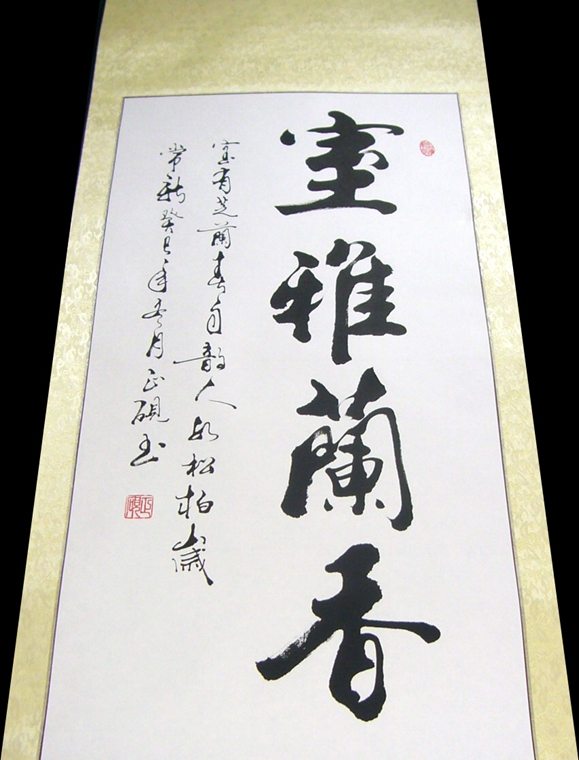 室雅蘭香
室有芝蘭春自韵人如松柏歲
常新癸巳年冬月正硯書